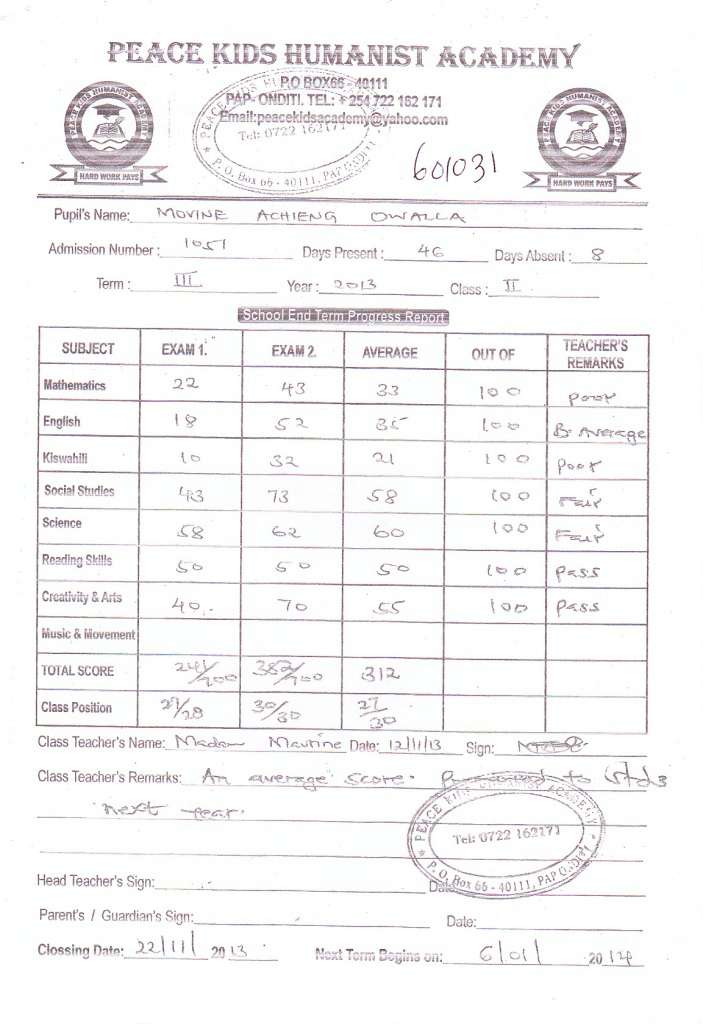 PEACE KIDS HUMANIST ACADEMY
P.O BOX 66 - 40111
PAP- ONDITI. TEL: + 254 722 162 171
Email:peacekidsacademy@yahoo.com
Tel: 0722 162171
P. O. Box 66 - 40111, PAP ONDITI
PEACE KIDS HUMANIST ACADEMY
HARD WORK PAYS
PEACE KIDS HUMANIST ACADEMY
HARD WORK PAYS
601031
Pupil's Name: MOVINE ACHIENG OWALLA
Admission Number : 1051 Days Present : 46 Days Absent : 8
Term : III Year : 2013 Class : II
School End Term Progress Report
SUBJECT EXAM 1. EXAM 2. AVERAGE OUT OF TEACHER'S REMARKS
Mathematics 22 43 33 100 poor
English 18 52 35 100 B. Average
Kiswahili 10 32 21 100 poor
Social Studies 43 73 58 100 Fair
Science 58 62 60 100 Fair
Reading Skills 50 50 50 100 pass
Creativity & Arts 40 70 55 100 pass
Music & Movement
TOTAL SCORE 241/700 382/700 312
Class Position 27/28 30/30 27/30
Class Teacher's Name: Madam Maurine Date: 12/11/13 Sign:
Class Teacher's Remarks: An average score. to Std 3
next year.
PEACE KIDS HUMANIST ACADEMY
Tel: 0722 162171
P. O. Box 66 - 40111, PAP ONDITI
Head Teacher's Sign: Date:
Parent's / Guardian's Sign: Date:
Clossing Date: 22/11/ 2013 Next Term Begins on: 6/01/ 2014